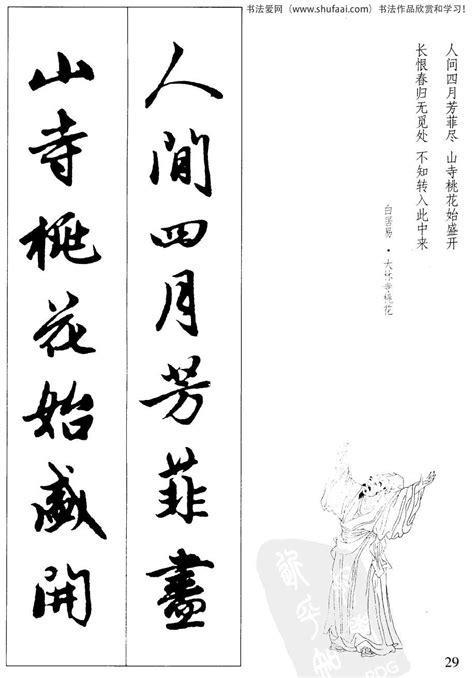 书法爱网（www.shufaai.com）书法作品欣赏和学习！
人问四月芳菲尽 山寺桃花始盛开
长恨春归无觅处 不知转入此中来
白居易·大林寺桃花
人間四月芳菲盡
山寺桃花始盛開
29